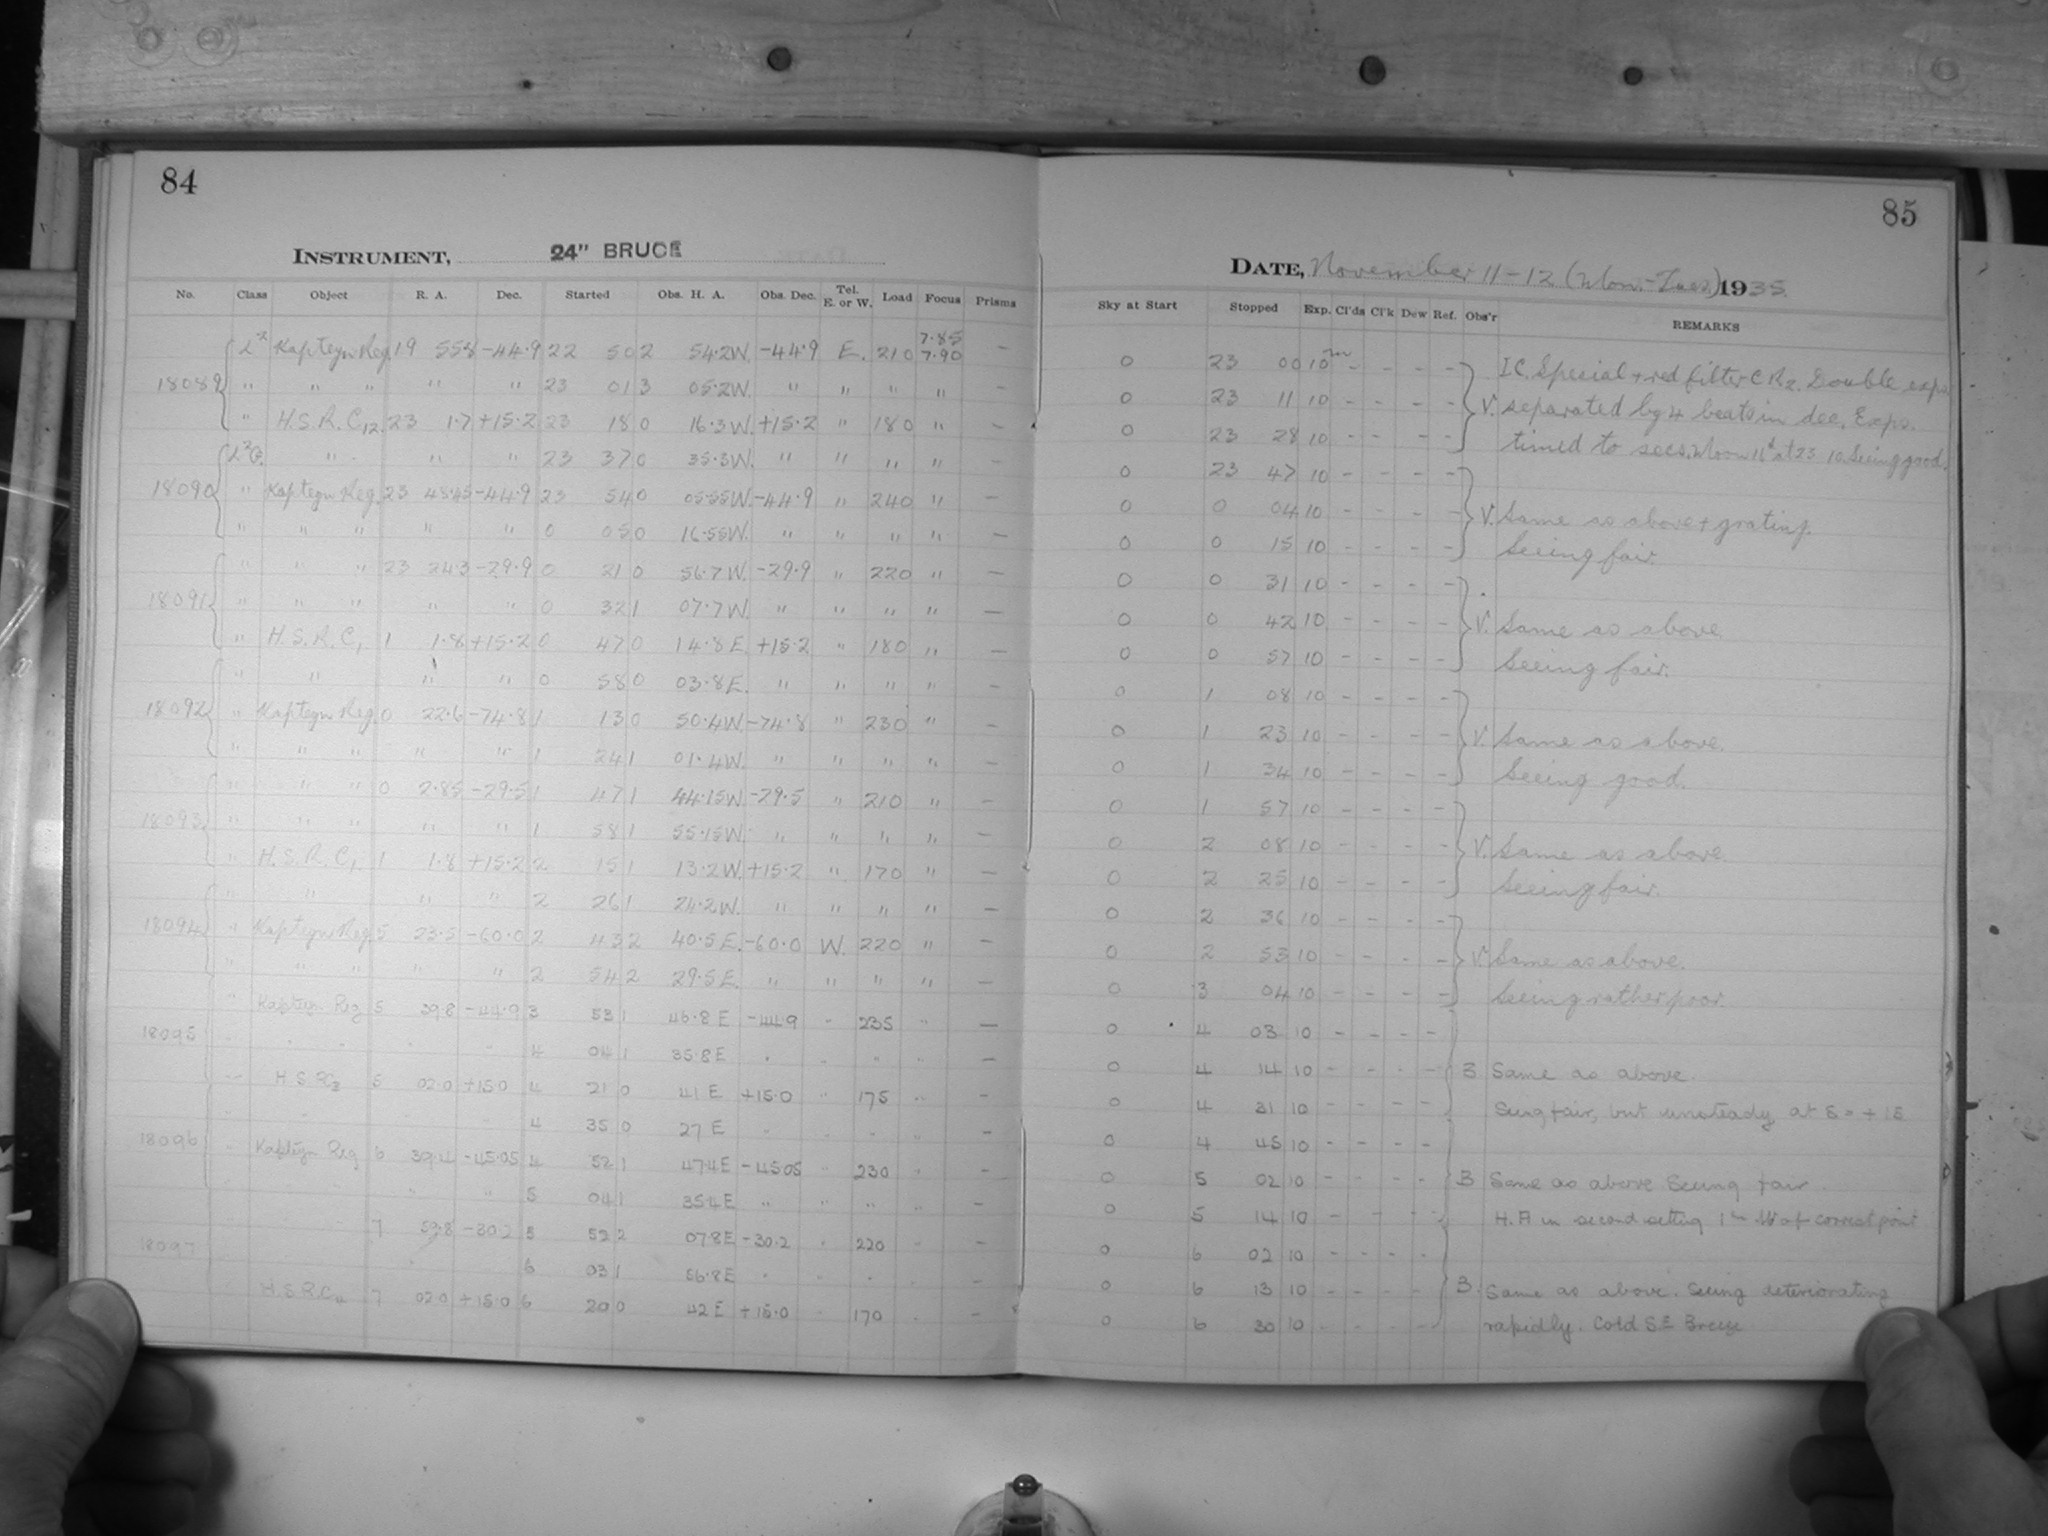 84
INSTRUMENT, 24" BRUCE
No. Class Object R. A. Dec. Started Obs. H. A. Obs. Dec. Tel. E. or W. Load Focus Prisms
Kapteyn Reg. 19 55.8 -44.9 22 50 2 54.2W. -44.9 E. 210 7.85 7.90 —
18089 " " " " " 23 01 3 05.2W. " " " " —
" H.S.R.C12. 23 1.7 +15.2 23 18 0 16.3W. +15.2 " 180 " —
" " " 23 37 0 35.3W. " " " " —
18090 " Kapteyn Reg. 23 48.45 -44.9 23 54 0 05.55W. -44.9 " 240 " —
" " " " " 0 05 0 16.55W. " " " " —
" " " 23 24.3 -29.9 0 21 0 56.7W. -29.9 " 220 " —
18091 " " " " " 0 32 1 07.7W. " " " " —
" H.S.R.C1 1 1.8 +15.2 0 47 0 14.8E. +15.2 " 180 " —
" " " " 0 58 0 03.8E. " " " " —
18092 " Kapteyn Reg. 0 22.6 -74.8 1 13 0 50.4W. -74.8 " 230 " —
" " " " " 1 24 1 01.4W. " " " " —
" " " 0 2.85 -29.5 1 47 1 44.15W. -29.5 " 210 " —
18093 " " " " " 1 58 1 55.15W. " " " " —
" H.S.R.C1 1 1.8 +15.2 2 15 1 13.2W. +15.2 " 170 " —
" " " " 2 26 1 24.2W. " " " " —
18094 " Kapteyn Reg. 5 23.5 -60.0 2 43 2 40.5E. -60.0 W. 220 " —
" " " " " 2 54 2 29.5E. " " " " —
" Kapteyn Reg 5 39.8 -44.9 3 53 1 46.8E -44.9 " 235 " —
18095 " " " " " 4 04 1 35.8E " " " " —
" H.S.R.C3 5 02.0 +15.0 4 21 0 41 E +15.0 " 175 " —
4 35 0 27 E " " " " —
18096 " Kapteyn Reg 6 39.4 -45.05 4 52 1 47.4E -45.05 " 230 " —
" 5 04 1 35.4E " " " " —
7 59.8 -30.2 5 52 2 07.8E -30.2 " 220 " —
18097 6 03 1 56.8E " " " " —
H.S.R.C4 7 02.0 +15.0 6 20 0 42 E +15.0 " 170 " —
85
DATE, November 11-12 (Mon.-Tues.) 1935.
Sky at Start Stopped Exp. Cl'ds Cl'k Dew Ref. Obs'r REMARKS
0 23 00 10m - - - - I.C. Special + red filter C R2. Double exps.
0 23 11 10 - - - - V. separated by 4 beats in dec. Exps.
0 23 28 10 - - - - timed to secs. Moon 16d at 23 10. Seeing good.
0 23 47 10 - - - -
0 0 04 10 - - - - V. Same as above + grating.
0 0 15 10 - - - - Seeing fair.
0 0 31 10 - - - -
0 0 42 10 - - - - V. Same as above.
0 0 57 10 - - - - Seeing fair.
0 1 08 10 - - - -
0 1 23 10 - - - - V. Same as above.
0 1 34 10 - - - - Seeing good.
0 1 57 10 - - - -
0 2 08 10 - - - - V. Same as above.
0 2 25 10 - - - - Seeing fair.
0 2 36 10 - - - -
0 2 53 10 - - - - V. Same as above.
0 3 04 10 - - - - Seeing rather poor.
0 4 03 10 - - - -
0 4 14 10 - - - - B Same as above.
0 4 31 10 - - - - Seeing fair, but unsteady at δ = +15
0 4 45 10 - - - -
0 5 02 10 - - - - B Same as above Seeing fair.
0 5 14 10 - - - - H.A in second setting 1m W of correct point
0 6 02 10 - - - -
0 6 13 10 - - - - B. Same as above. Seeing deteriorating
0 6 30 10 - - - - rapidly. Cold SE Breeze